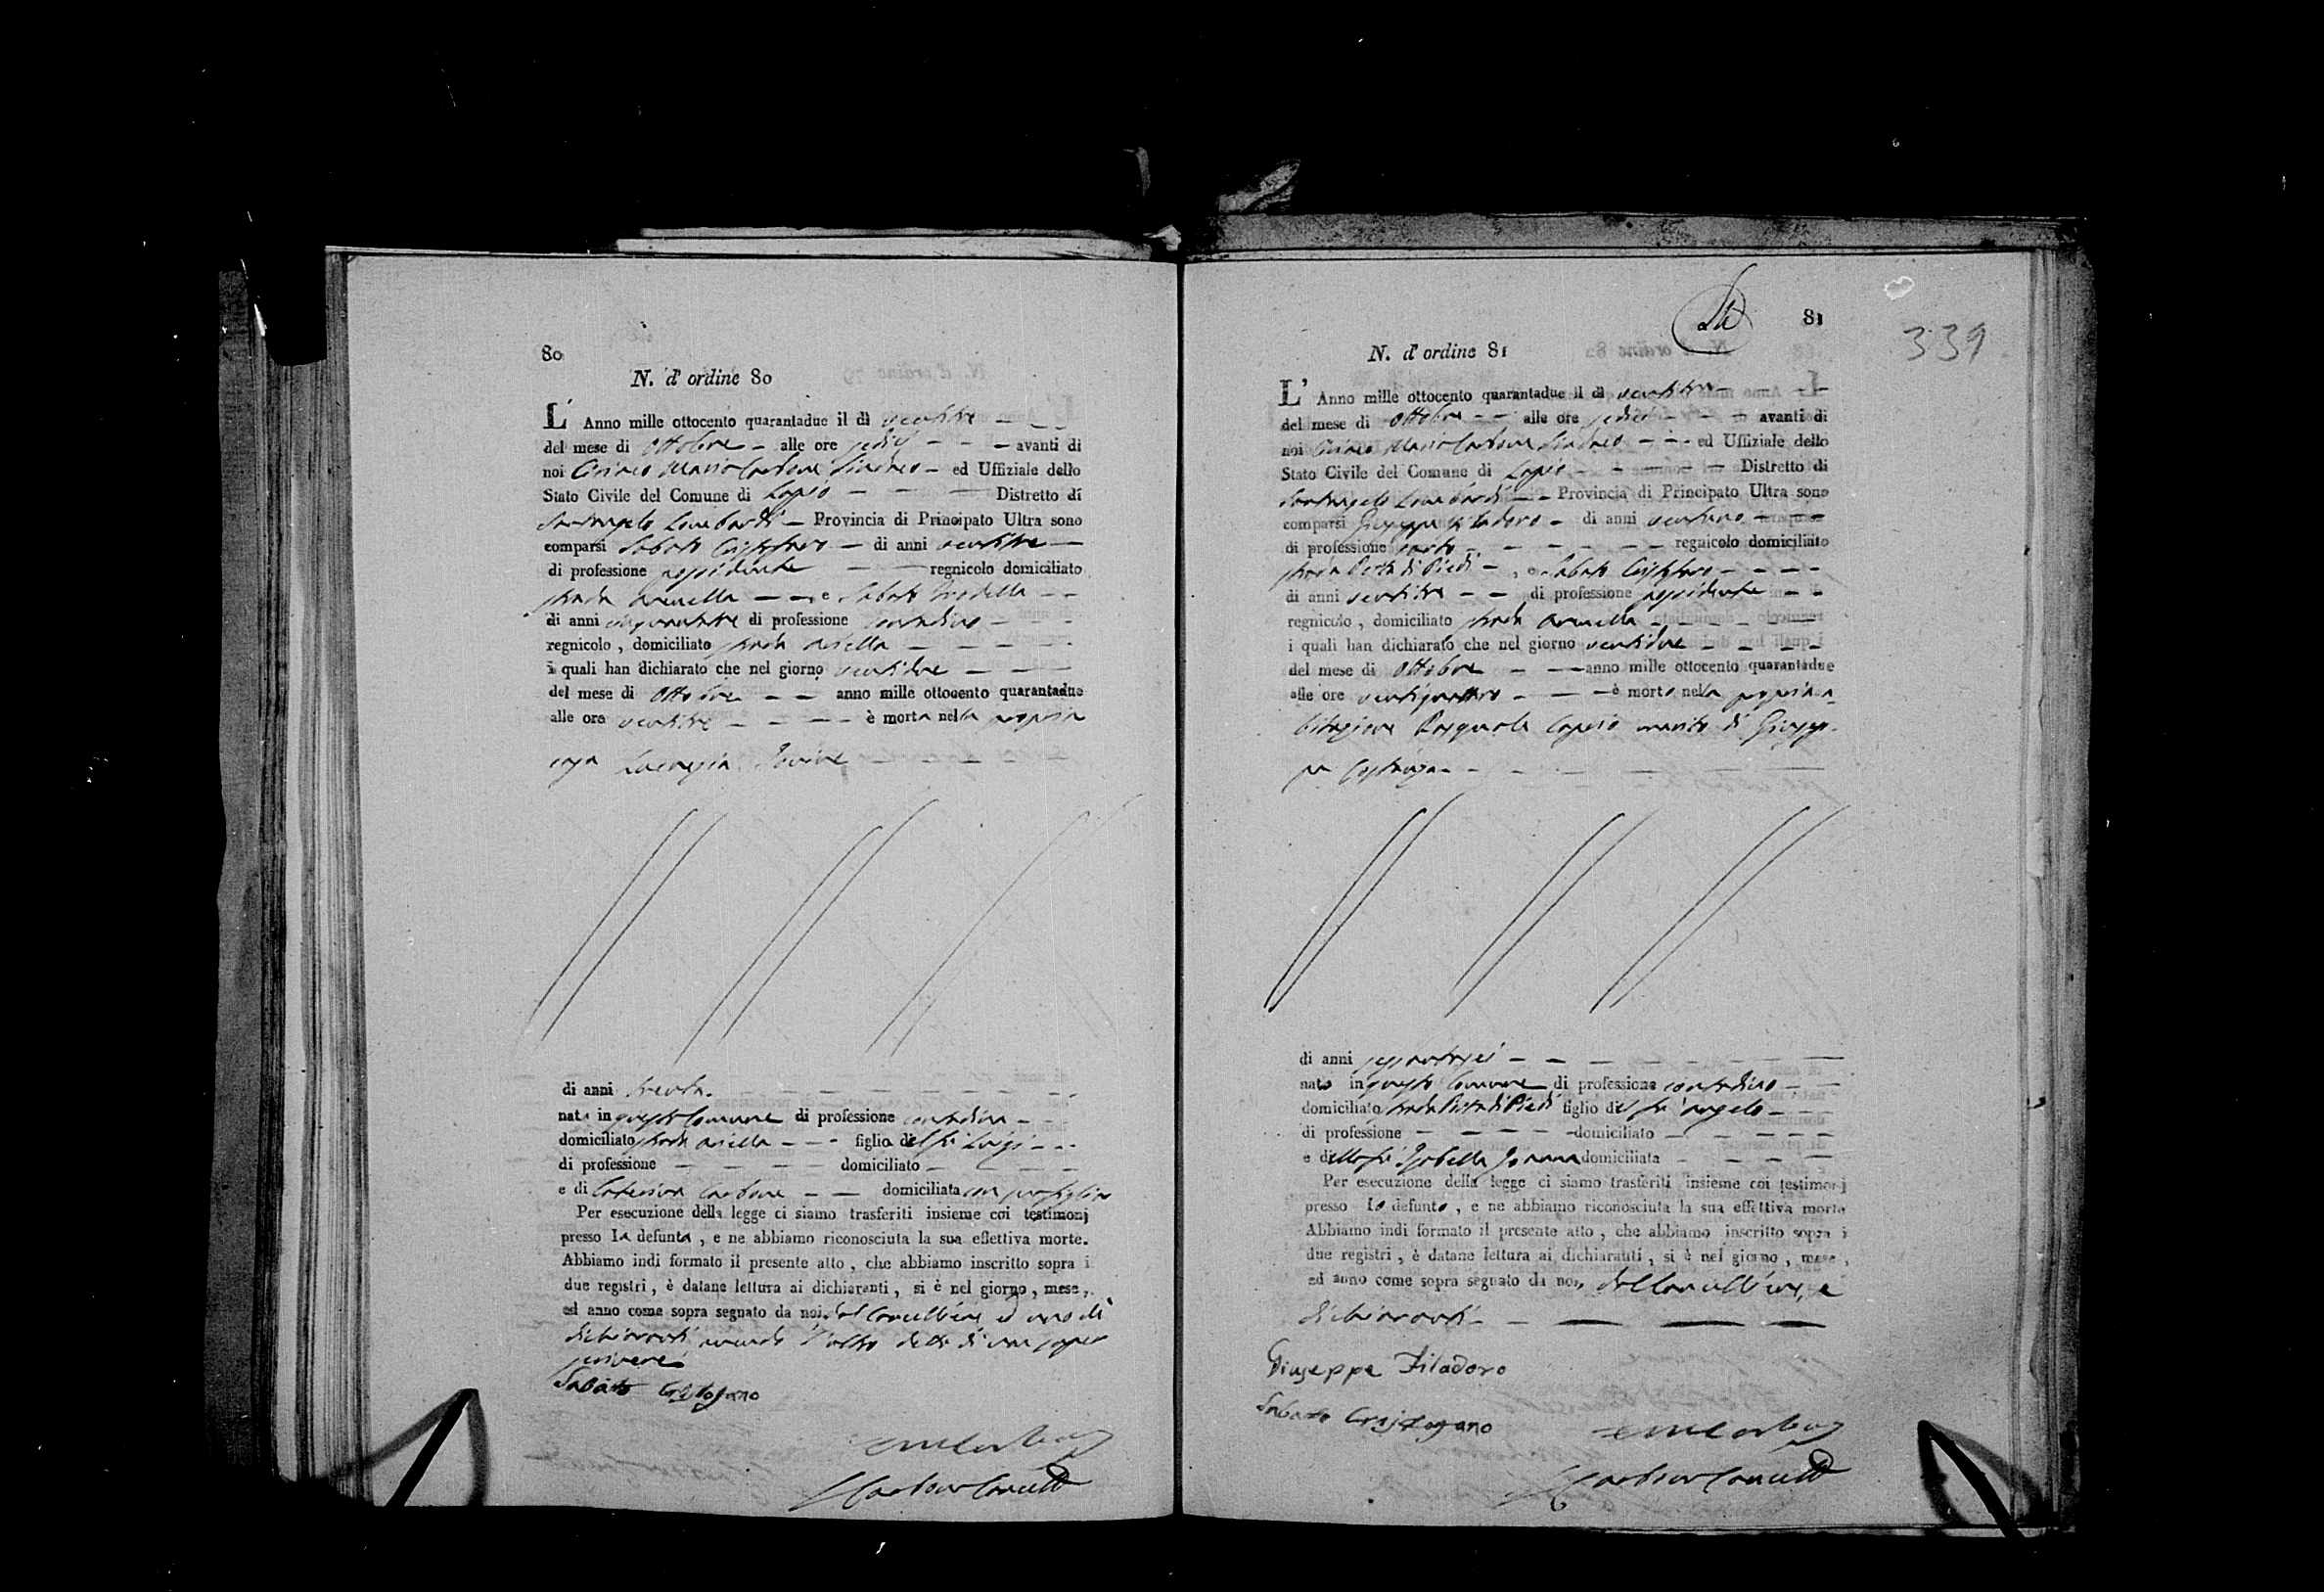 80
N. d' ordine 80
L' Anno mille ottocento quarantadue il dì ventitre
del mese di Ottobre alle ore sedici avanti di
noi Ciriaco Maria Carbone Sindaco ed Uffiziale dello
Stato Civile del Comune di Lapio Distretto di
Santangelo Lombardi Provincia di Principato Ultra sono
comparsi Sabato Cristofano di anni ventitre
di professione possidente regnicolo domiciliato
strada e Sabato
di anni di professione contadino
regnicolo , domiciliato strada
i quali han dichiarato che nel giorno ventidue
del mese di Ottobre anno mille ottocento quarantadue
alle ore ventitre è morta nella propria
casa Lucrezia Iovine
di anni trenta
nata in questo Comune di professione contadina
domiciliato strada figlia del fu Luigi
di professione domiciliato
e di Caterina Carbone domiciliata
Per esecuzione della legge ci siamo trasferiti insieme coi testimonj
presso la defunta , e ne abbiamo riconosciuta la sua effettiva morte.
Abbiamo indi formato il presente atto , che abbiamo inscritto sopra i
due registri , è datane lettura ai dichiaranti , si è nel giorno , mese ,
ed anno come sopra segnato da noi, dal Cancelliere, ed uno dei
dichiaranti, avendo l'altro detto di non saper
scrivere
Sabato Cristofano
81
339
N. d' ordine 81
L' Anno mille ottocento quarantadue il dì ventitre
del mese di Ottobre alle ore sedici avanti di
noi Ciriaco Maria Carbone Sindaco ed Uffiziale dello
Stato Civile del Comune di Lapio Distretto di
Santangelo Lombardi Provincia di Principato Ultra sono
comparsi Giuseppe Filadoro di anni ventuno
di professione sarto regnicolo domiciliato
strada Porta di Piedi , e Sabato Cristofano
di anni ventitre di professione possidente
regnicolo , domiciliato strada
i quali han dichiarato che nel giorno ventidue
del mese di Ottobre anno mille ottocento quarantadue
alle ore ventiquattro è morto nella propria a
bitazione Pasquale Caposio marito di Giusep
pa Costanza
di anni sessantasei
nato in questo Comune di professione contadino
domiciliato strada Porta di Piedi figlio del fu Angelo
di professione domiciliato
e della fu Isabella domiciliata
Per esecuzione della legge ci siamo trasferiti insieme coi testimonj
presso lo defunto , e ne abbiamo riconosciuta la sua effettiva morte
Abbiamo indi formato il presente atto , che abbiamo inscritto sopra i
due registri , è datane lettura ai dichiaranti , si è nel giorno , mese ,
ed anno come sopra segnato da noi, dal Cancelliere, e
dichiaranti
Giuseppe Filadoro
Sabato Cristofano